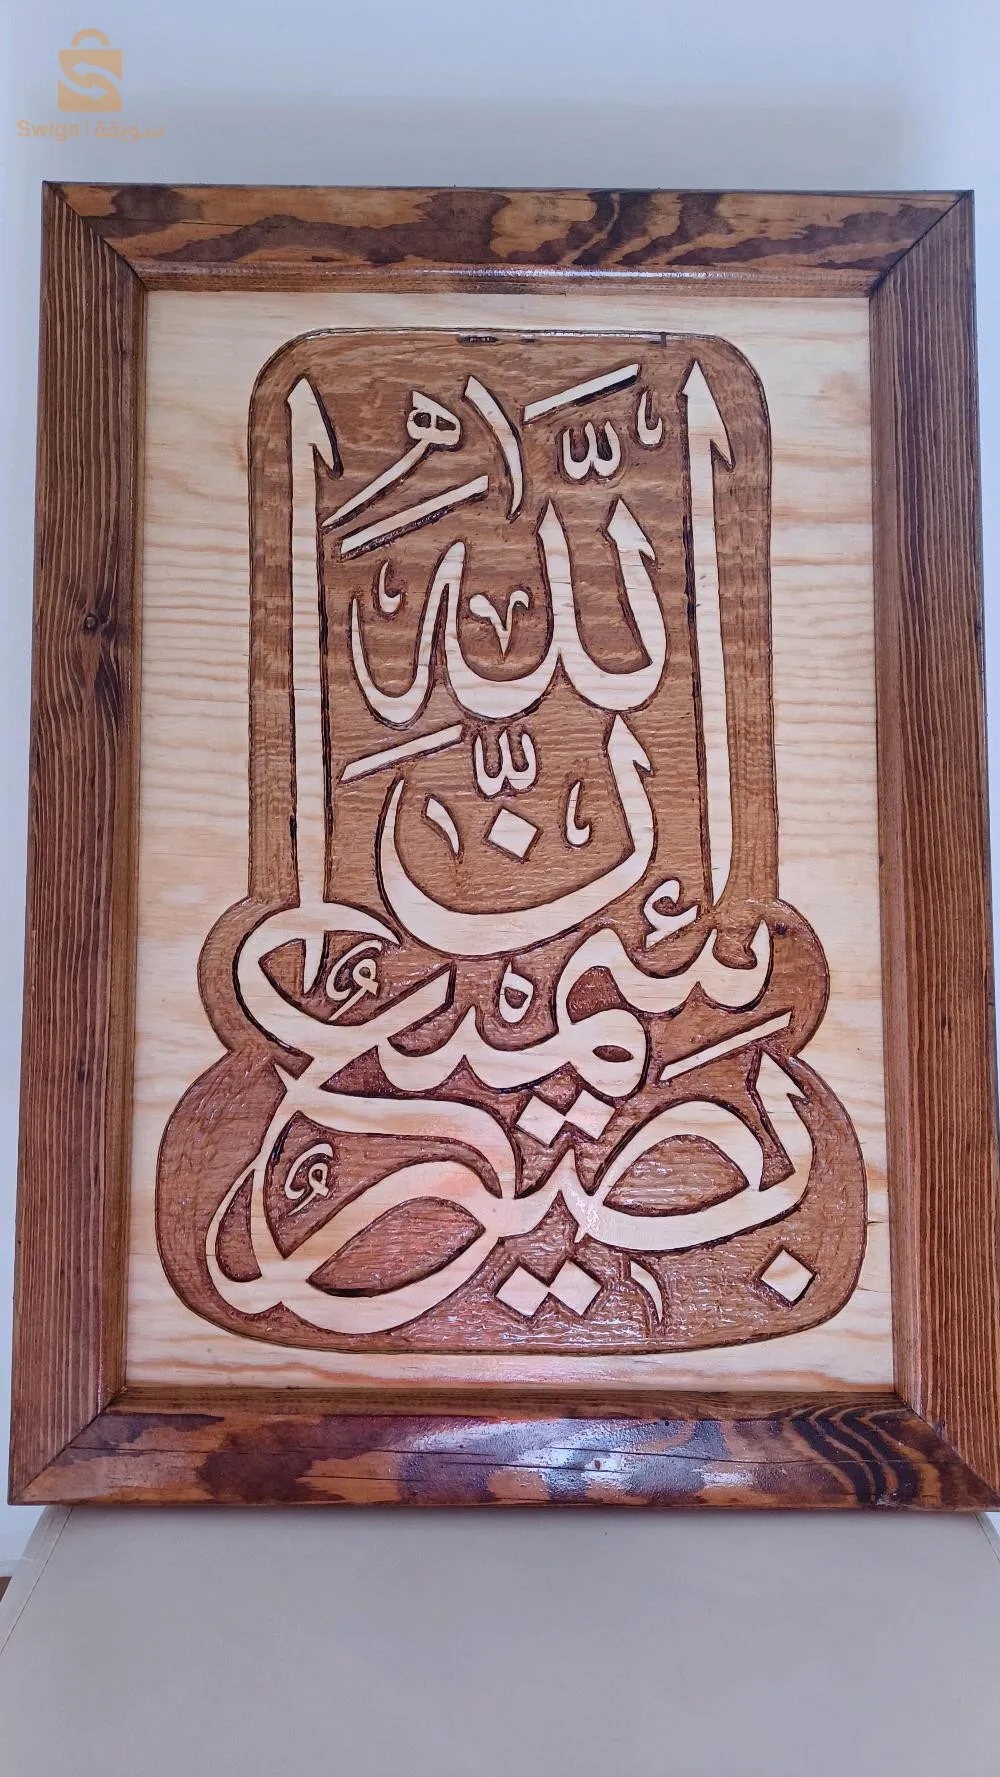 Swiga | سويقة
إِنَّ اللَّهَ
سَمِيعٌ
بَصِيرٌ